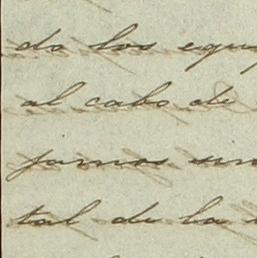 do los equi
al cabo de
jamos un
tal de la